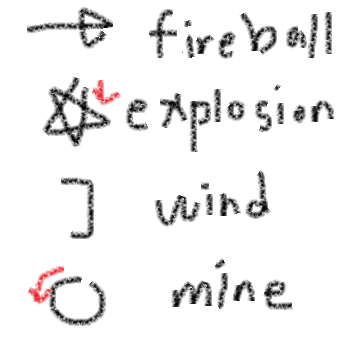 fireball
explosion
wind
mine